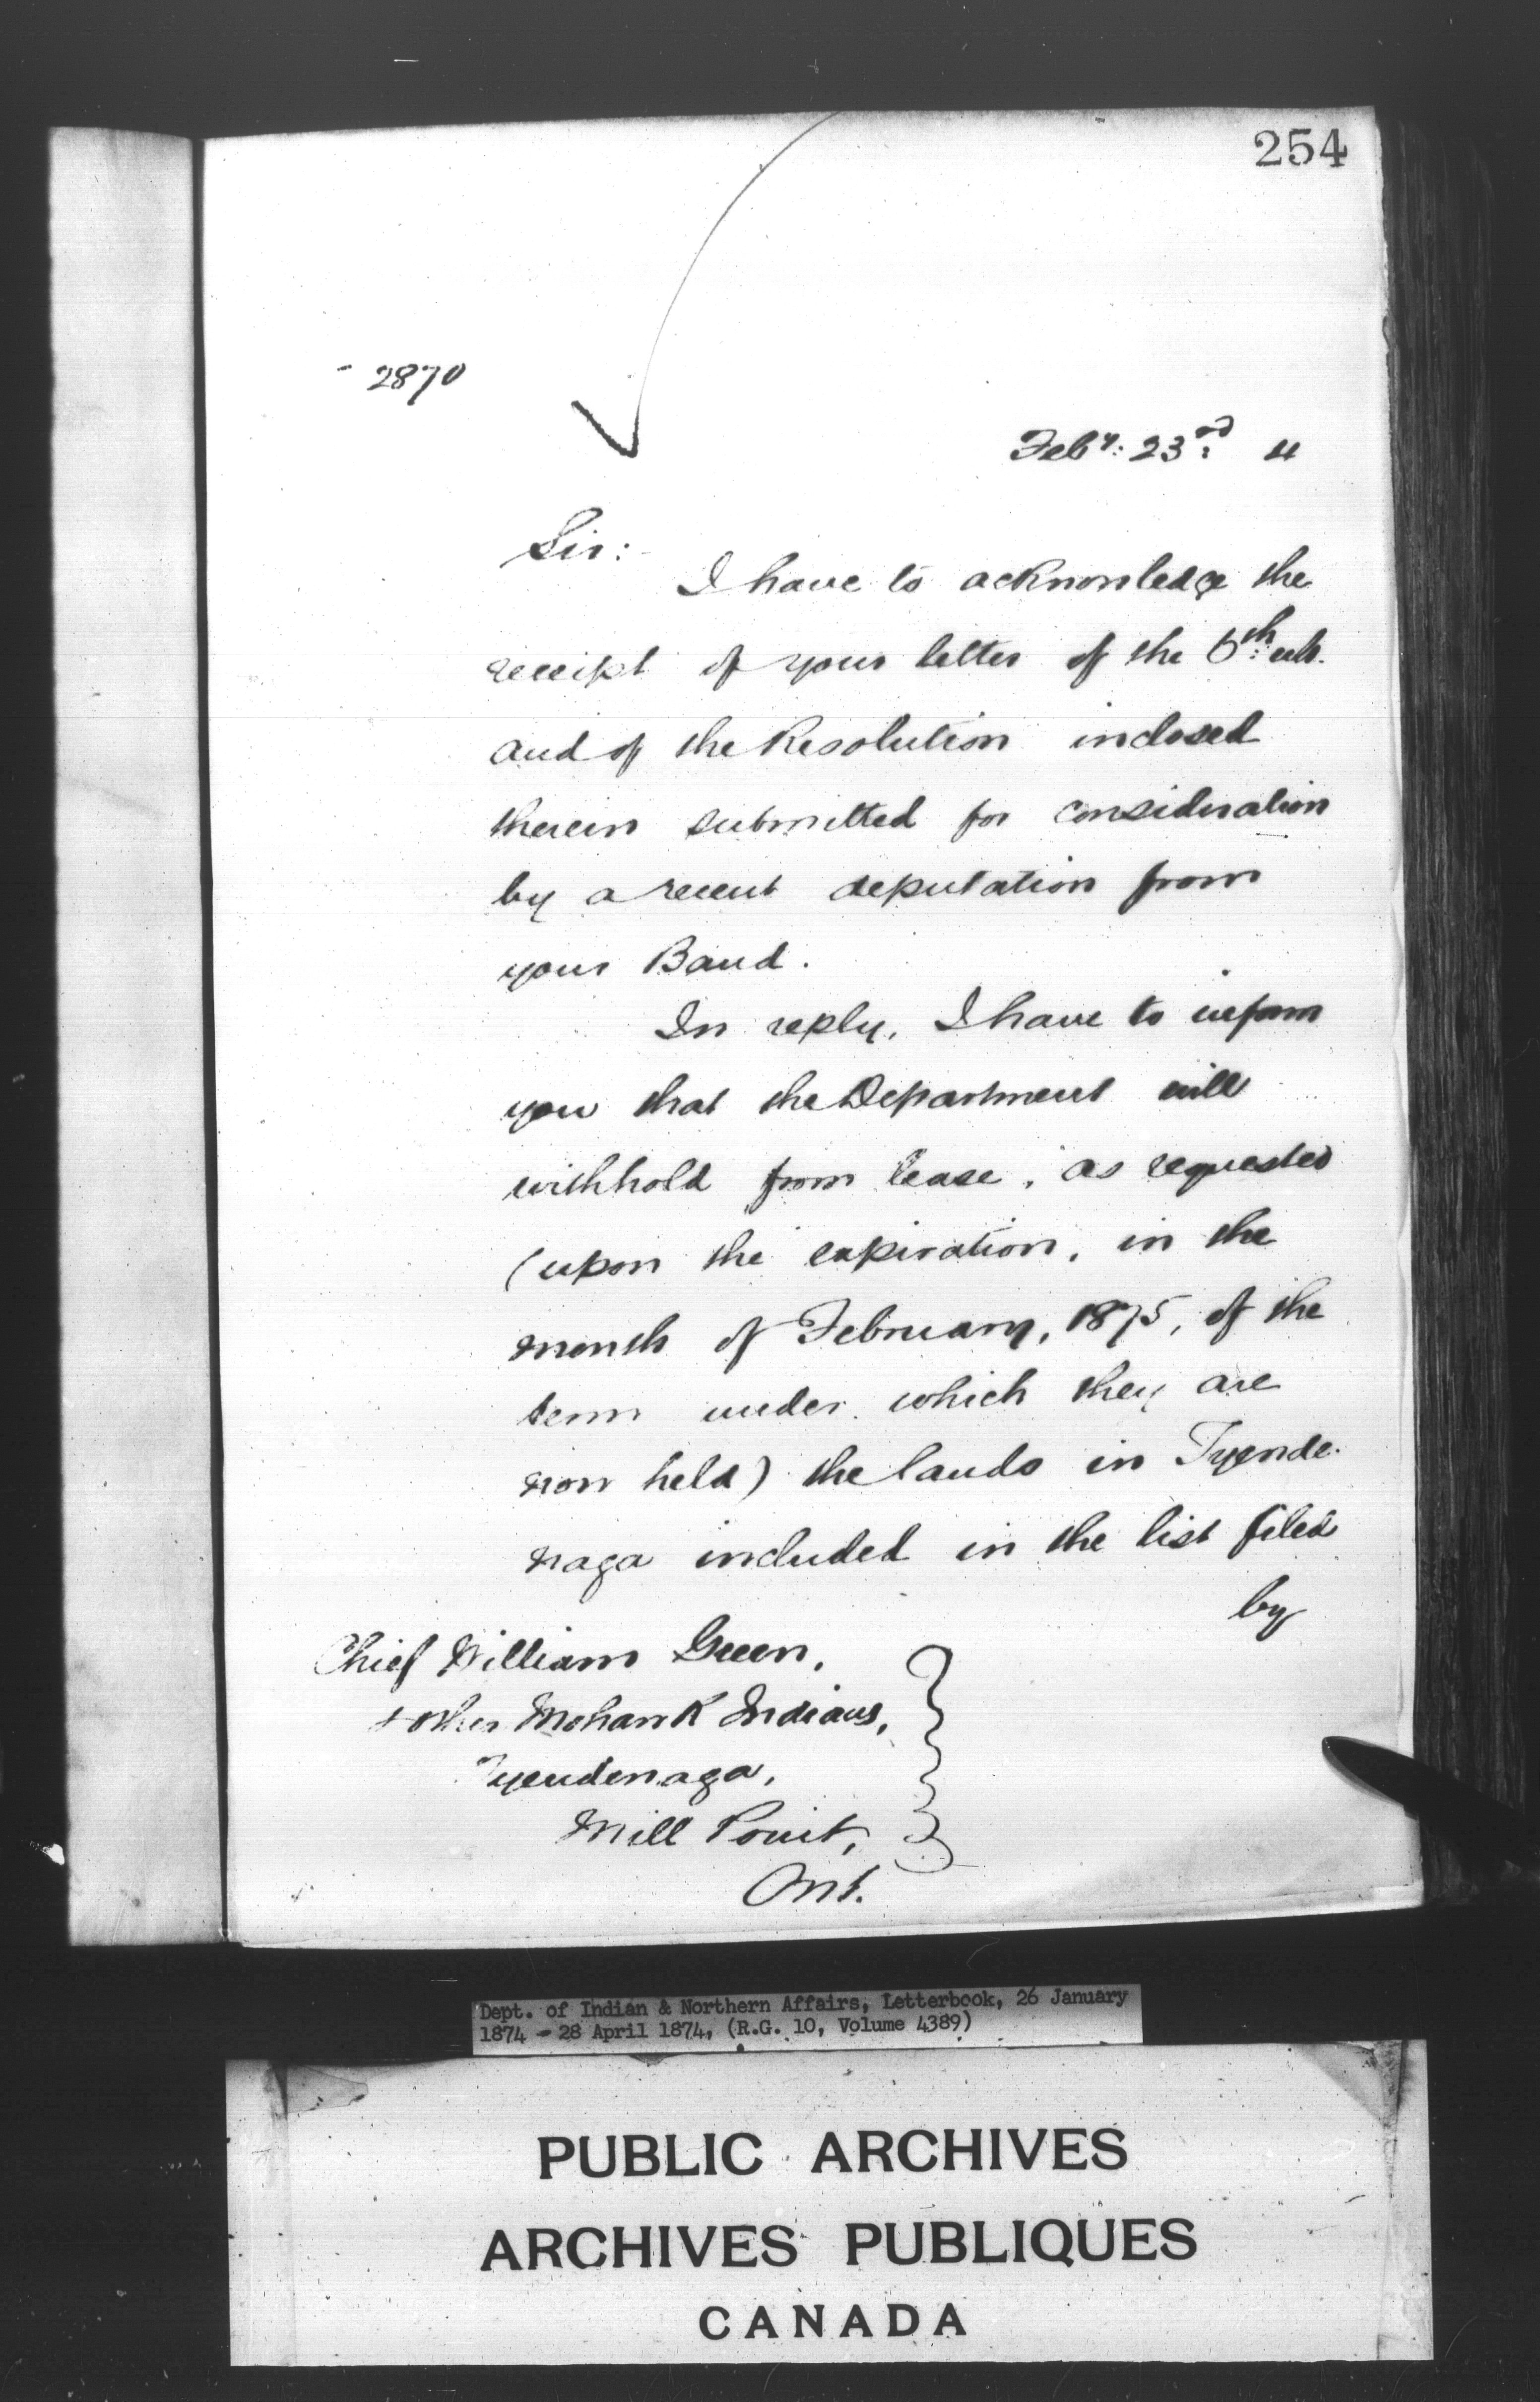 254
2870
Feby: 23rd: 4
Sir:-
I have to acknowledge the
receipt of your letter of the 6th: ult.
and of the Resolution inclosed
therein submitted for consideration
by a recent deputation from
your Band.
In reply, I have to inform
you that the Department will
withhold from lease, as requested
(upon the expiration, in the
month of February, 1875, of the
term under which they are
now held) the lands in Tyende-
naga included in the list filed
by
Chief William Green,
& other Mohawk Indians,
Tyendenaga,
Mill Point,
Ont.
Dept. of Indian & Northern Affairs, Letterbook, 26 January
1874 - 28 April 1874, (R.G. 10, Volume 4389)
PUBLIC ARCHIVES
ARCHIVES PUBLIQUES
CANADA